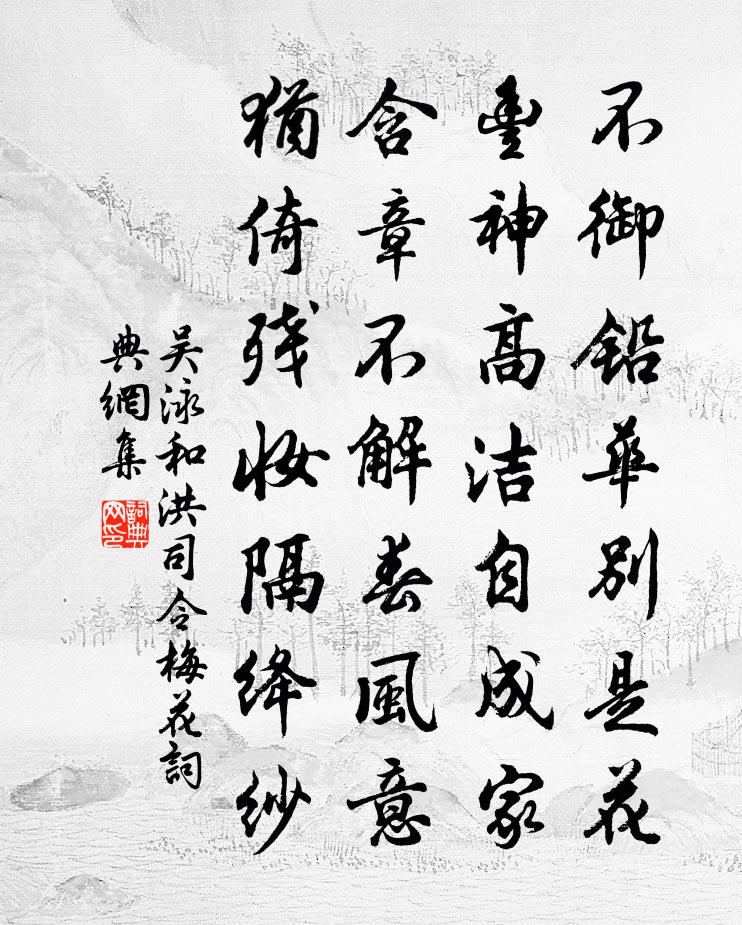 不御鉛華別是花
豐神高洁自成家
含章不解春風意
猶倚殘妝隔絳紗
吴泳和洪司令梅花詞
典網集
詞典
网印